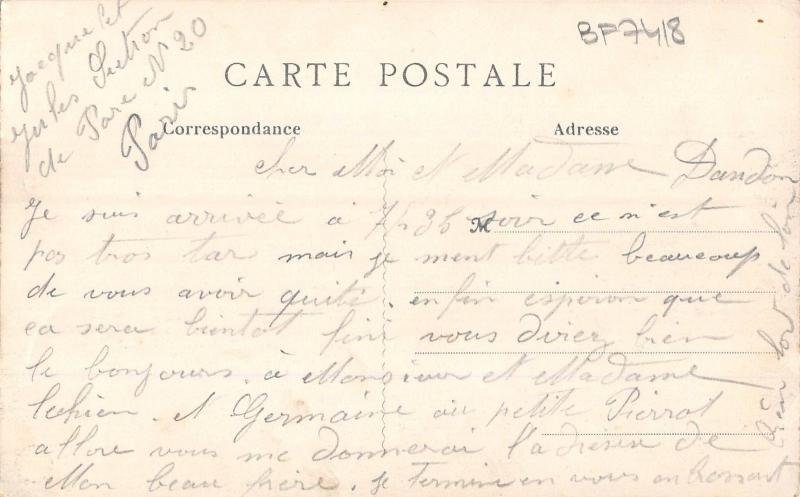 BF7418
Jacquelet
Jules Section
de Parc N 20
Paris
CARTE POSTALE
Correspondance
Adresse
cher Moi et Madame Dandon
Je suis arrivée à 7h35 soir ce n'est
M
pas tros tar mais je ment bitte beaucoup
de vous avoir quité. enfin esperon que
ca sera bientot fini vous direz bien
le bonjours. à Monsieur et Madame
lechien. et Germaine au petite Pierrot
allore vous me donnerai l'adresse de
Mon beau frère. Je termine en vous enbrassant
bien fort de loin